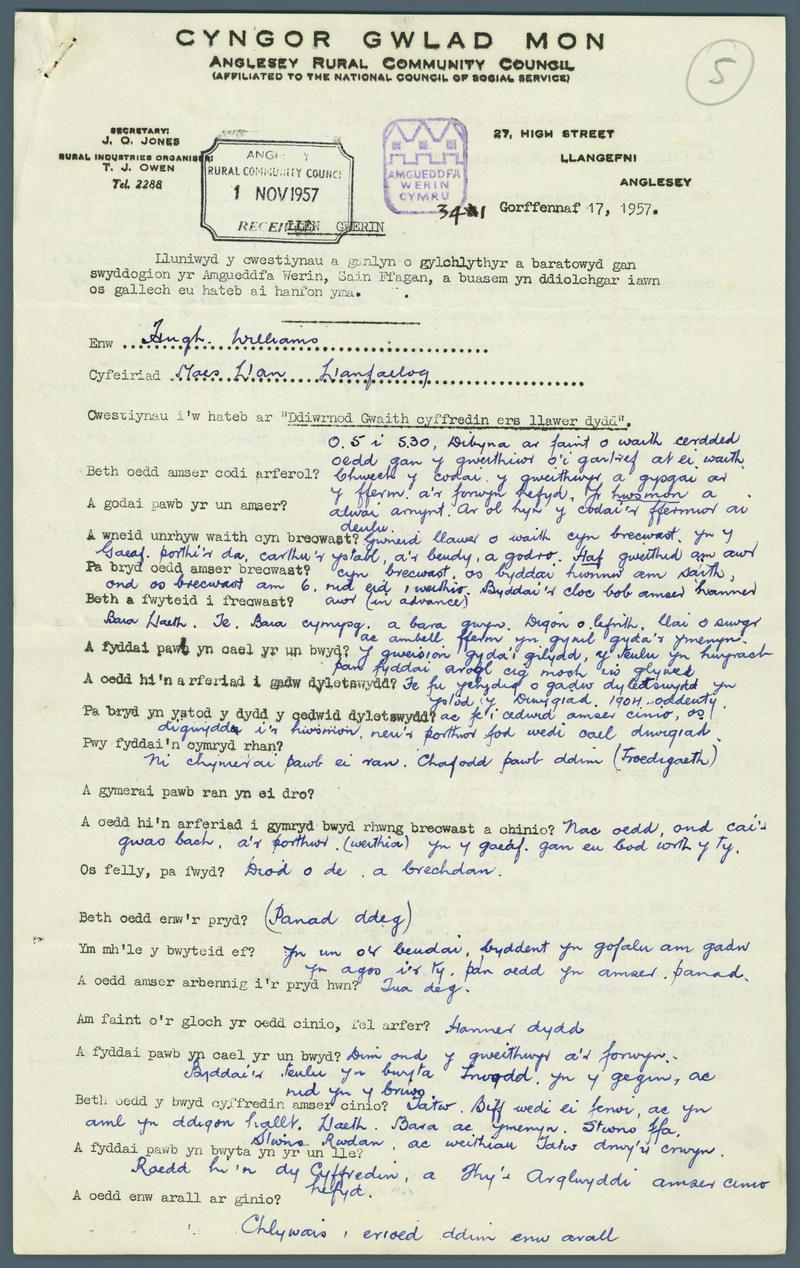 CYNGOR GWLAD MON
ANGLESEY RURAL COMMUNITY COUNCIL
(AFFILIATED TO THE NATIONAL COUNCIL OF SOCIAL SERVICE)
5
SECRETARY:
J. O. JONES
RURAL INDUSTRIES ORGANISER:
T. J. OWEN
Tel. 2288
RURAL COMMUNITY COUNCI
1 NOV 1957
RECEI
AMGUEDDFA
WERIN
CYMRU
27, HIGH STREET
LLANGEFNI
ANGLESEY
Gorffennaf 17, 1957.
LLEN GWERIN
Lluniwyd y cwestiynau a ganlyn o gylchlythyr a baratowyd gan
swyddogion yr Amgueddfa Werin, Sain Ffagan, a buasem yn ddiolchgar iawn
os gallech eu hateb ai hanfon yma.
Enw Hugh. Williams
Cyfeiriad Maes Llan Llanfaelog
Cwestiynau i'w hateb ar "Ddiwrnod Gwaith cyffredin ers llawer dydd".
O. 5 i 5.30, Dibyna ar faint o waith cerdded
oedd gan y gweithiwr o'i gartref at ei waith.
Beth oedd amser codi arferol? Chwech y codai y gweithwyr a gysgai ar
y fferm. a'r forwyn hefyd. Yr hwsmon a
A godai pawb yr un amser? alwai arnynt. Ar ol hyn y codai'r ffermwr ai
deulu.
A wneid unrhyw waith cyn brecwast? Gwneid llawer o waith cyn brecwast. Yn y
Gaeaf. porthi'r da, carthu'r ystabl, a'r beudy, a godro. Haf gweithid am awr
Pa bryd oedd amser brecwast? cyn brecwast. os byddai hwnnw am saith,
ond os brecwast am 6. nid eid i weithio. Byddai'r cloc bob amser hanner
Beth a fwyteid i frecwast? awr (in advance)
Bara Llaeth. Te. Bara cymysg. a bara gwyn. Digon o lefrith, llai o siwgr
ac ambell fferm yn gynil gyda'r ymenyn.
A fyddai pawb yn cael yr un bwyd? Y gweision gyda'i gilydd, y teulu yn hwyrach
pan fyddai arogl cig moch iw glywed
A oedd hi'n arferiad i gadw dyletswydd? Fe fu ychydig o gadw dyletswydd yn
ystod y Diwygiad. 1904. oddeutu,
Pa bryd yn ystod y dydd y cedwid dyletswydd? ac fe'i cedwid amser cinio, os
digwyddai i'r hwsmon, neu'r porthwr fod wedi cael diwygiad.
Pwy fyddai'n cymryd rhan?
Ni chymerai pawb ei ran. Chafodd pawb ddim (Troedigaeth)
A gymerai pawb ran yn ei dro?
A oedd hi'n arferiad i gymryd bwyd rhwng brecwast a chinio? Nac oedd, ond cai'r
gwas bach, a'r porthwr. (weithia) yn y gaeaf. gan eu bod wrth y ty.
Os felly, pa fwyd? Diod o de, a brechdan.
Beth oedd enw'r pryd? (Panad ddeg)
Ym mh'le y bwyteid ef? Yn un o'r beudai, byddent yn gofalu am gadw
yn agos i'r ty. pan oedd yn amser. panad.
A oedd amser arbennig i'r pryd hwn? Tua deg.
Am faint o'r gloch yr oedd cinio, fel arfer? Hanner dydd
A fyddai pawb yn cael yr un bwyd? Dim ond y gweithwyr a'r forwyn.
Byddai'r teulu yn bwyta Trwodd. yn y gegin, ac
nid yn y briws.
Beth oedd y bwyd cyffredin amser cinio? Tatw. Biff wedi ei ferwi, ac yn
aml yn ddigon hallt. Llaeth. Bara ac Ymenyn. Stwns ffa.
Stwns Rwdan, ac weithiau Tatw drwy'i crwyn.
A fyddai pawb yn bwyta yn yr un lle?
Roedd hi'n dy Cyffredin, a Thy'r Arglwyddi amser cinio
hefyd.
A oedd enw arall ar ginio?
Chlywais i erioed ddim enw arall